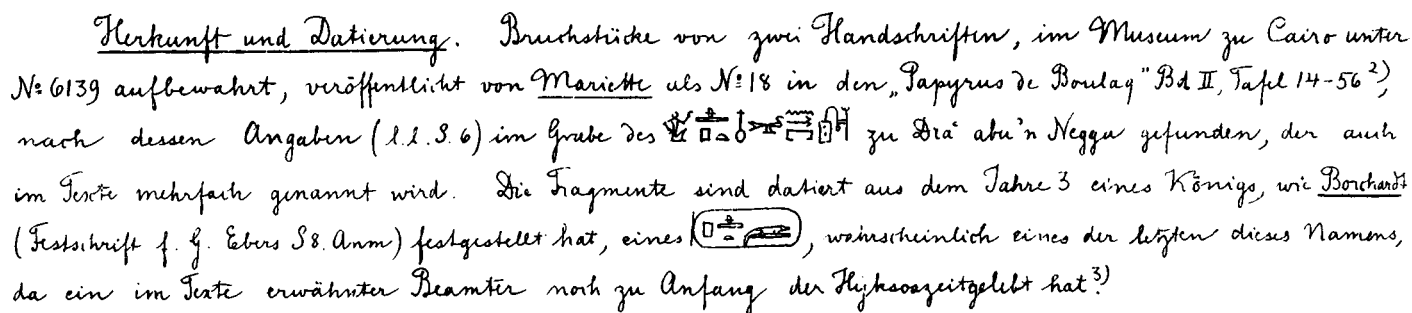 Herkunft und Datierung. Bruchstücke von zwei Handschriften, im Museum zu Cairo unter
No 6139 aufbewahrt, veröffentlicht von Mariette als No 18 in den „Papyrus de Boulaq" Bd II, Tafel 14-56 2),
nach dessen Angaben (l.l. S. 6) im Grabe des zu Drá abu'n Negga gefunden, der auch
im Texte mehrfach genannt wird. Die Fragmente sind datiert aus dem Jahre 3 eines Königs, wie Borchardt
(Festschrift f. G. Ebers S 8. Anm) festgestellt hat, eines , wahrscheinlich eines der letzten dieses Namens,
da ein im Texte erwähnter Beamter noch zu Anfang der Hyksoszeit gelebt hat 3)